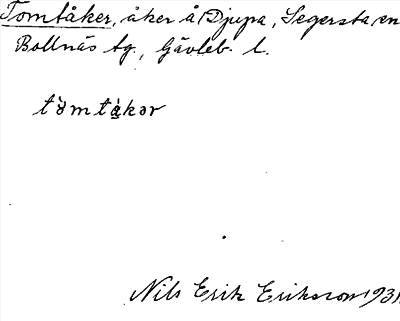 Tomtåker, åker å Djupa, Segersta, en
Bollnäs tg., Gävleb. l.
tòmtákər
Nils Erik Eriksson 1931